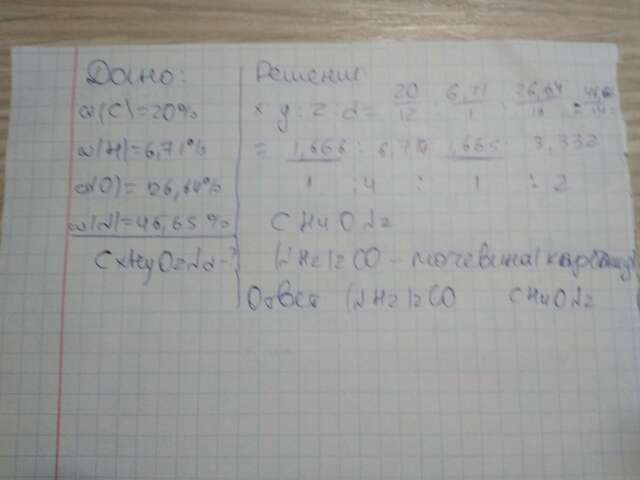 Дано:
ω(C)=20%
ω(H)=6,71%
ω(O)=26,64%
ω(N)=46,65%
CxHyOzNd-?
Решение
x:y:z:d= 20/12 : 6,71/1 : 26,64/16 :
= 1,666 : 6,71 : 1,665 : 3,332
1 : 4 : 1 : 2
CH4ON2
(NH2)2CO - мочевина (карбамид)
Ответ (NH2)2CO CH4ON2